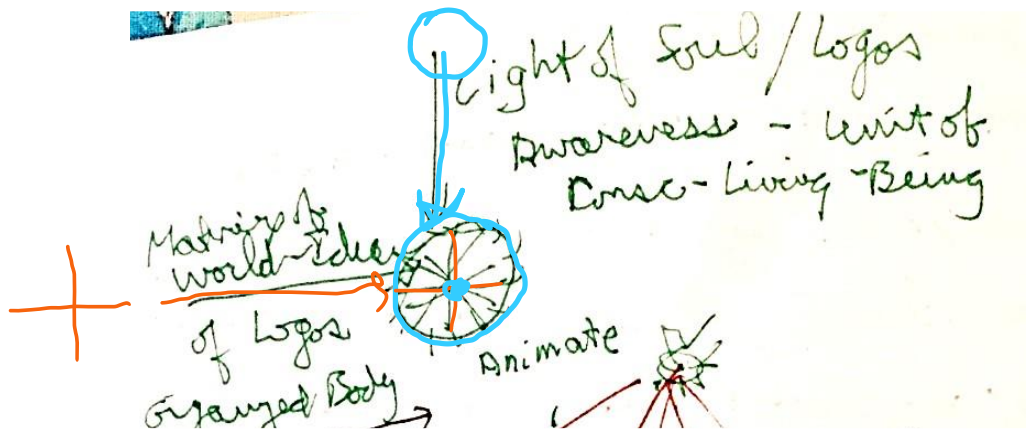 Light of Soul / Logos
Awareness - Unit of
Consc - Living - Being
Matrix of
World-Ideas
of Logos
Animate
Organized Body